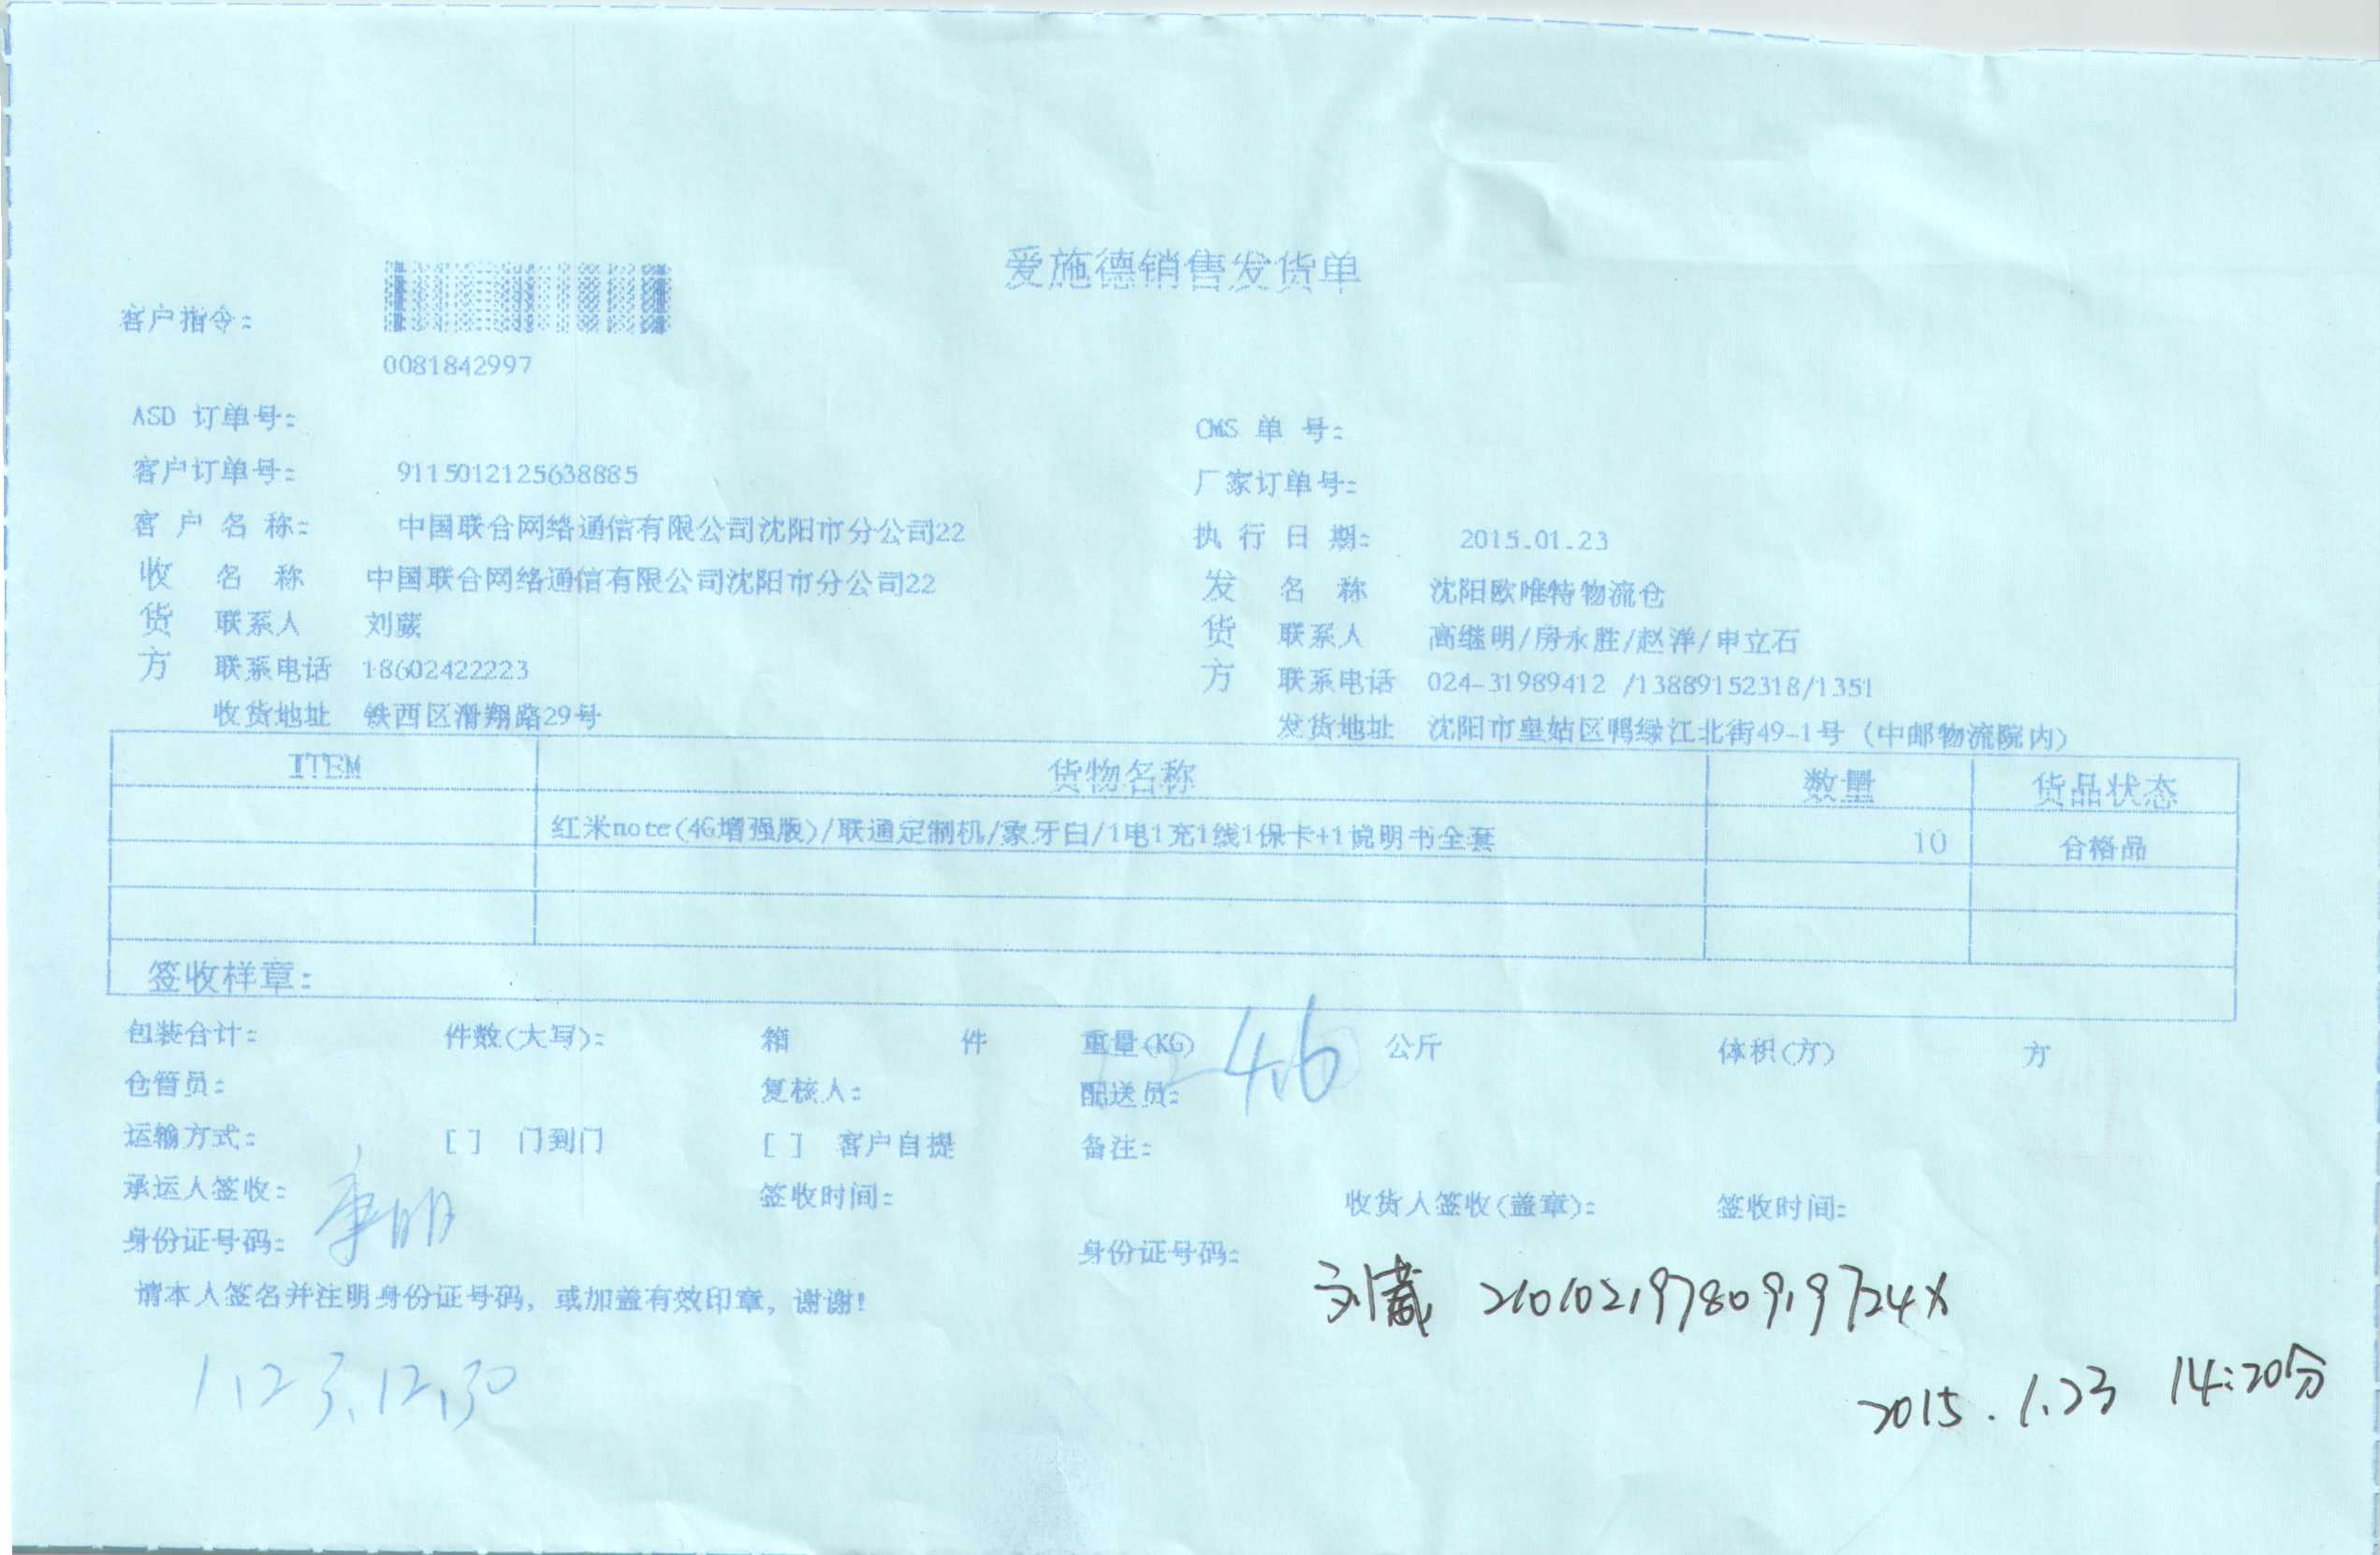 爱施德销售发货单
客户指令:
0081842997
ASD 订单号:
CMS 单 号:
客户订单号: 9115012125638885
厂家订单号:
客 户 名 称: 中国联合网络通信有限公司沈阳市分公司22
执 行 日 期: 2015.01.23
收 名 称 中国联合网络通信有限公司沈阳市分公司22
发 名 称 沈阳欧唯特物流仓
货 联系人 刘葳
货 联系人 高继明/房永胜/赵洋/申立石
方 联系电话 18602422223
方 联系电话 024-31989412 /13889152318/1351
收货地址 铁西区滑翔路29号
发货地址 沈阳市皇姑区鸭绿江北街49-1号（中邮物流院内）
ITEM 货物名称 数量 货品状态
红米note(4G增强版)/联通定制机/象牙白/1电1充1线1保卡+1说明书全套 10 合格品
签收样章:
包装合计: 件数(大写): 箱 件 重量(KG) 4.6 公斤 体积(方) 方
仓管员: 复核人: 配送员:
运输方式: [ ] 门到门 [ ] 客户自提 备注:
承运人签收: 签收时间: 收货人签收(盖章): 签收时间:
身份证号码: 身份证号码:
刘葳 21010219780919724X
请本人签名并注明身份证号码，或加盖有效印章，谢谢!
1.23.12.30
2015.1.23 14:20分